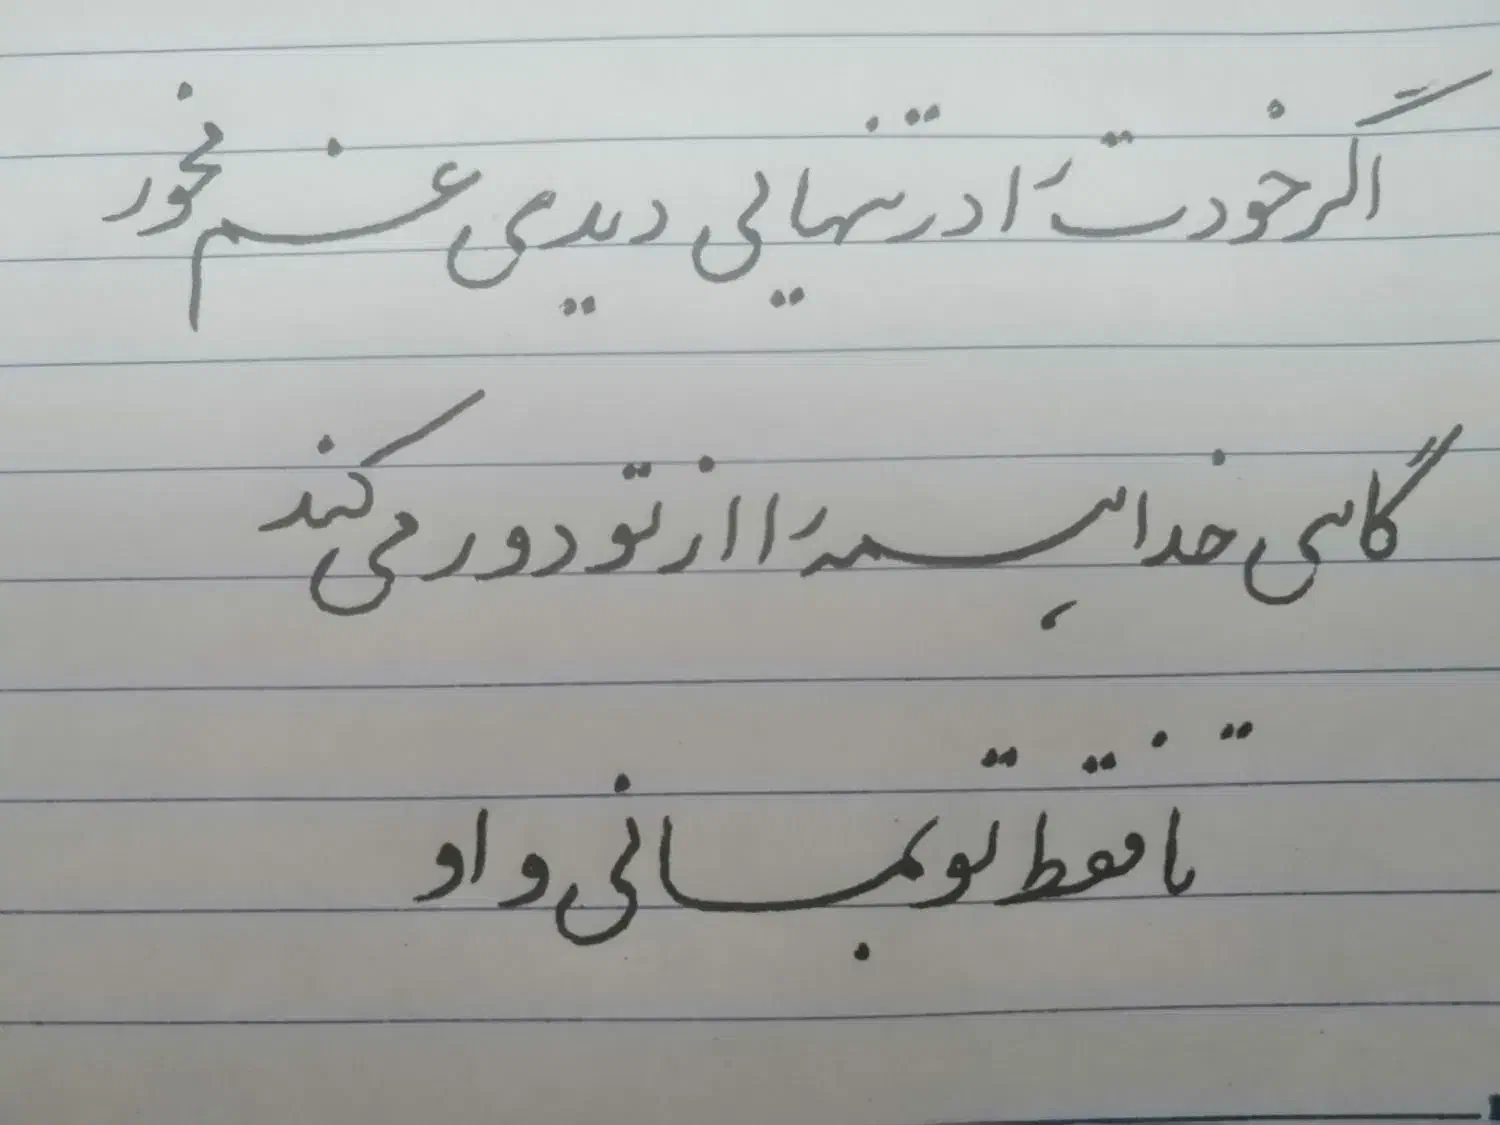 اگر خودت را در تنهایی دیدی غم مخور
گاهی خدا همه را از تو دور می کند
تا فقط تو بمانی و او